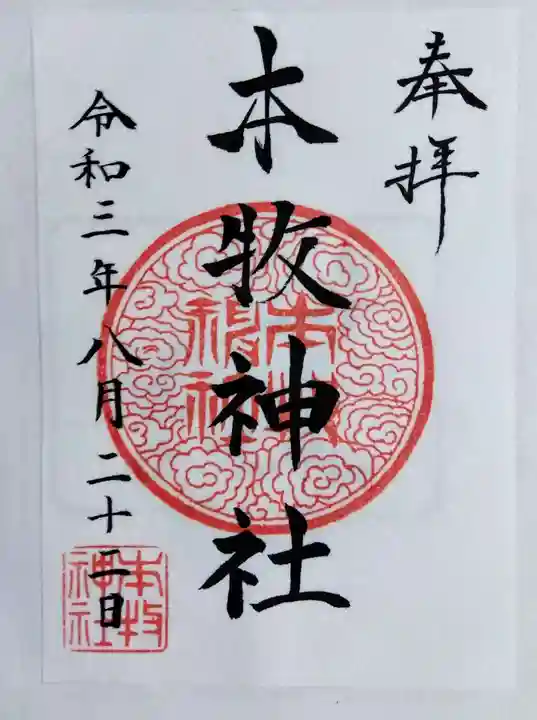 奉拝
本牧神社
令和三年八月二十二日
本牧
神社